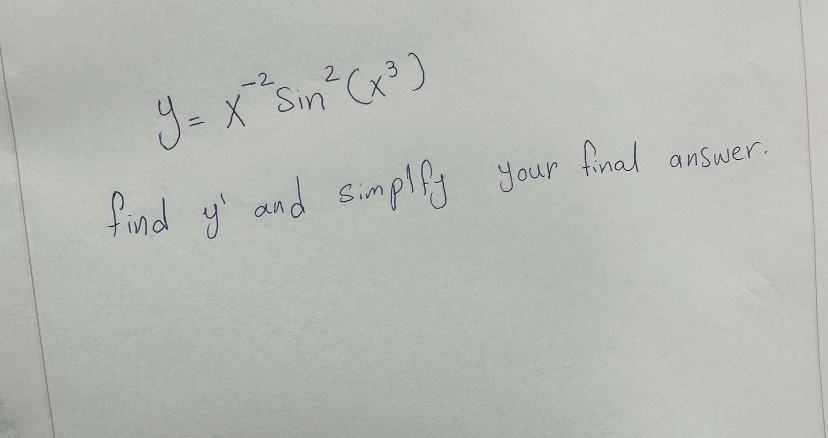 y = x⁻² Sin² (x³)
find y' and simplfy your final answer.